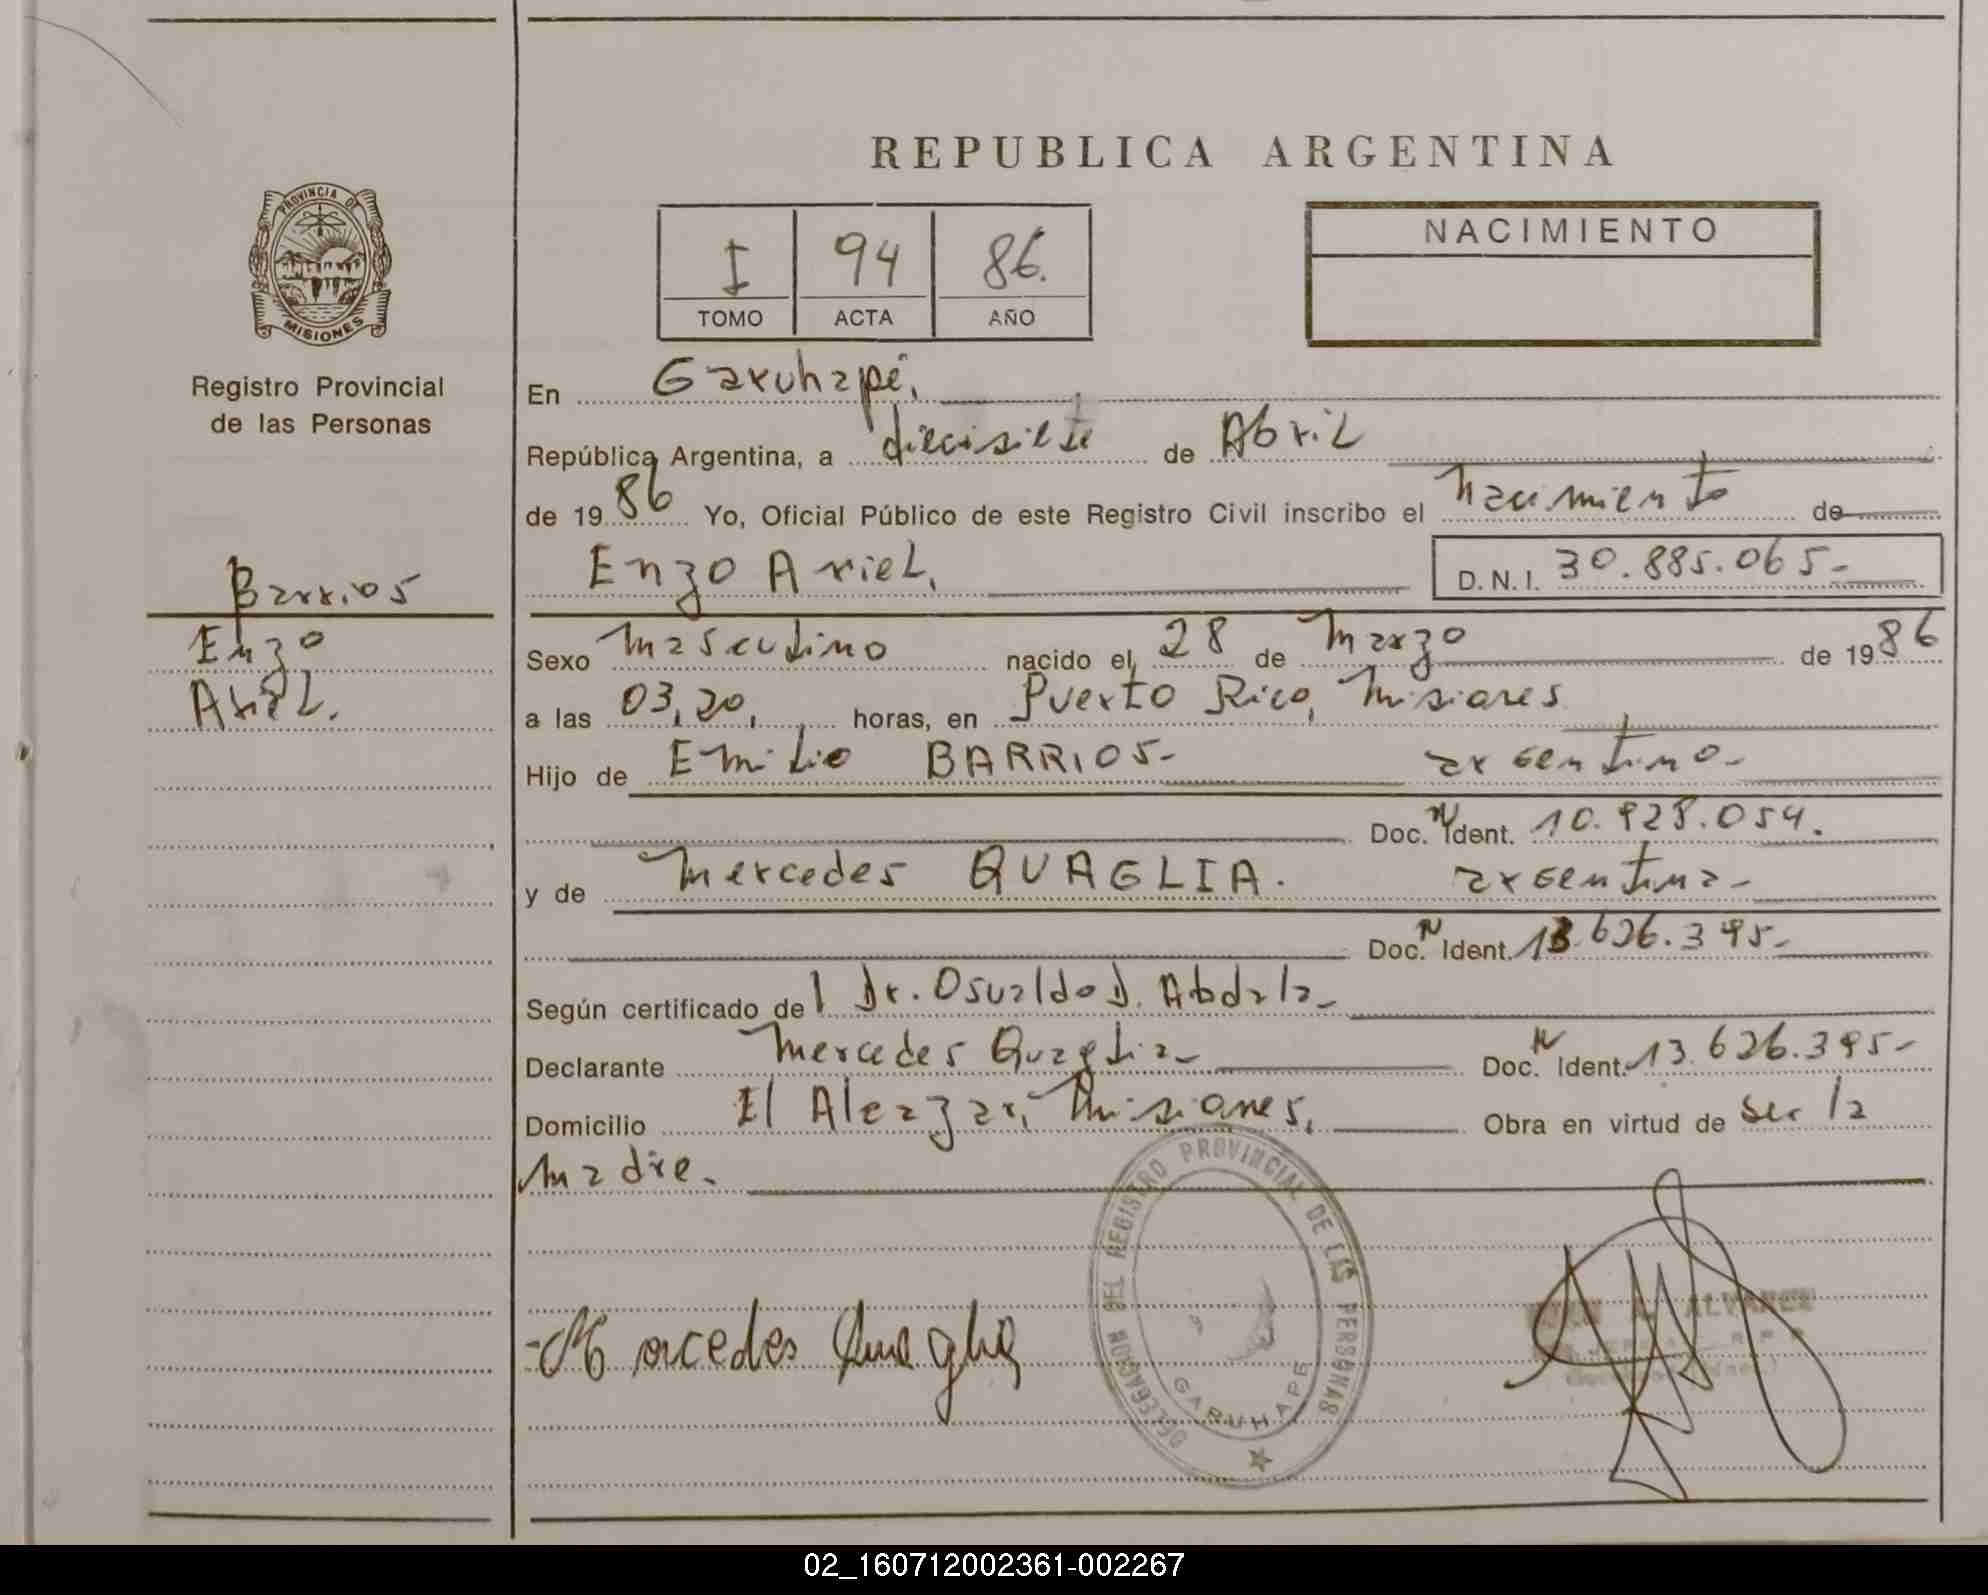 REPUBLICA ARGENTINA
PROVINCIA DE
MISIONES
Registro Provincial
de las Personas
I 94 86.
TOMO ACTA AÑO
NACIMIENTO
En Garuhapé,
República Argentina, a diecisiete de Abril
de 1986 Yo, Oficial Público de este Registro Civil inscribo el nacimiento de
Enzo Ariel, D.N.I. 30.885.065-
Barrios
Enzo
Ariel.
Sexo masculino nacido el 28 de Marzo de 1986
a las 03,20, horas, en Puerto Rico, Misiones
Hijo de Emilio BARRIOS- argentino-
Doc. N Ident. 10.928.054.
y de Mercedes QUAGLIA. argentina-
Doc. N Ident. 13.626.395-
Según certificado del Dr. Osvaldo D. Abdala-
Declarante Mercedes Quaglia- Doc. N Ident. 13.626.395-
Domicilio El Alcazar, Misiones, Obra en virtud de ser la
madre.
DELEGACION DEL REGISTRO PROVINCIAL DE LAS PERSONAS
GARUHAPE
Mercedes Quaglia
A. ALVAREZ
02_160712002361-002267